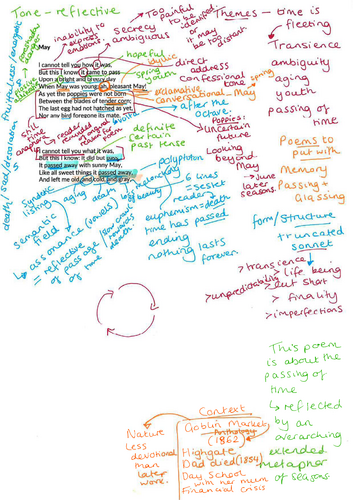 Tone - reflective
Themes - time is
fleeting
Transience
ambiguity
aging
youth
passing of
time
inability to
express
emotions.
secrecy
ambiguous
Too painful
to be
described
or it
may be
regret
May
I cannot tell you how it was,
But this I know: it came to pass
Upon a bright and breezy day
When May was young; ah, pleasant May!
As yet the poppies were not born
Between the blades of tender corn;
The last egg had not hatched as yet,
Nor any bird foregone its mate.
I cannot tell you what it was,
But this I know: it did but pass.
It passed away with sunny May,
Like all sweet things it passed away,
And left me old, and cold, and gray.
hopeful
idyllic
spring
youth
direct
address
confessional
tone
exclamative
conversational
May
spring
after the
octave.
Poppies:
uncertain
future
Looking
beyond
May
June
later
seasons.
definite
certain
past tense
polyptoton
6 lines
= sestet
euphemism = death
time has passed
ending
nothing lasts
forever.
Syndetic
listing
aging
death
semantic
field
assonance (vowels)
= reflective
of passage
of time
Poems to
put with
Memory
Passing +
Glassing
form/structure
truncated
sonnet
> transience
> life being
cut short
> unpredictability
> finality
> imperfections
This poem
is about the
passing of
time
↳ reflected
by an
overarching
extended
metaphor
of seasons
Context
Goblin Market
(1862)
Highgate
Dad died (1854)
Day School
with her mum
Financial crisis
Nature
Less
devotional
than
later
work.